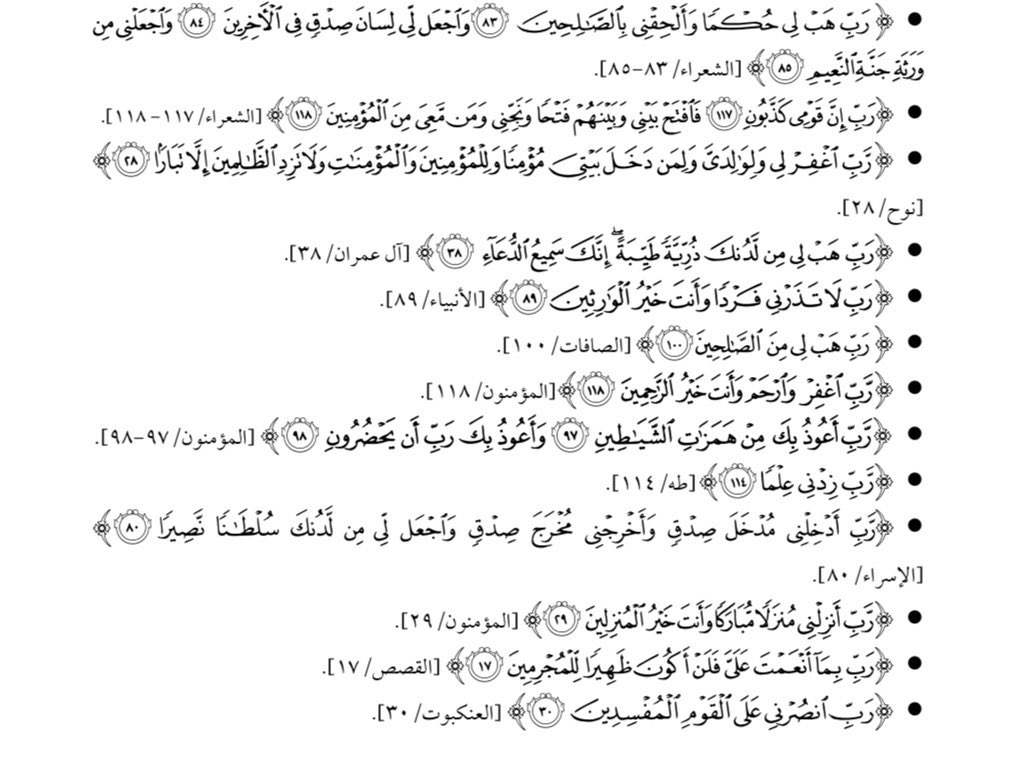 • ﴿ رَبِّ هَبْ لِى حُكْمًا وَأَلْحِقْنِى بِٱلصَّـٰلِحِينَ ٨٣ وَٱجْعَل لِّى لِسَانَ صِدْقٍ فِى ٱلْـَٔاخِرِينَ ٨٤ وَٱجْعَلْنِى مِن
وَرَثَةِ جَنَّةِ ٱلنَّعِيمِ ٨٥ ﴾ [الشعراء/ ٨٣-٨٥].
• ﴿رَبِّ إِنَّ قَوْمِى كَذَّبُونِ ١١٧ فَٱفْتَحْ بَيْنِى وَبَيْنَهُمْ فَتْحًا وَنَجِّنِى وَمَن مَّعِىَ مِنَ ٱلْمُؤْمِنِينَ ١١٨ ﴾ [الشعراء/ ١١٧- ١١٨].
• ﴿رَّبِّ ٱغْفِرْ لِى وَلِوَٰلِدَىَّ وَلِمَن دَخَلَ بَيْتِىَ مُؤْمِنًا وَلِلْمُؤْمِنِينَ وَٱلْمُؤْمِنَـٰتِ وَلَا تَزِدِ ٱلظَّـٰلِمِينَ إِلَّا تَبَارًۢا ٢٨ ﴾
[نوح/ ٢٨].
• ﴿رَبِّ هَبْ لِى مِن لَّدُنكَ ذُرِّيَّةً طَيِّبَةً ۖ إِنَّكَ سَمِيعُ ٱلدُّعَآءِ ٣٨ ﴾ [آل عمران/ ٣٨].
• ﴿رَبِّ لَا تَذَرْنِى فَرْدًا وَأَنتَ خَيْرُ ٱلْوَٰرِثِينَ ٨٩ ﴾ [الأنبياء/ ٨٩].
• ﴿ رَبِّ هَبْ لِى مِنَ ٱلصَّـٰلِحِينَ ١٠٠ ﴾ [الصافات/ ١٠٠].
• ﴿رَّبِّ ٱغْفِرْ وَٱرْحَمْ وَأَنتَ خَيْرُ ٱلرَّٰحِمِينَ ١١٨ ﴾ [المؤمنون/ ١١٨].
• ﴿رَّبِّ أَعُوذُ بِكَ مِنْ هَمَزَٰتِ ٱلشَّيَـٰطِينِ ٩٧ وَأَعُوذُ بِكَ رَبِّ أَن يَحْضُرُونِ ٩٨ ﴾ [المؤمنون/ ٩٧-٩٨].
• ﴿رَّبِّ زِدْنِى عِلْمًا ١١٤ ﴾ [طه/ ١١٤].
• ﴿رَّبِّ أَدْخِلْنِى مُدْخَلَ صِدْقٍ وَأَخْرِجْنِى مُخْرَجَ صِدْقٍ وَٱجْعَل لِّى مِن لَّدُنكَ سُلْطَـٰنًا نَّصِيرًا ٨٠ ﴾
[الإسراء/ ٨٠].
• ﴿رَّبِّ أَنزِلْنِى مُنزَلًا مُّبَارَكًا وَأَنتَ خَيْرُ ٱلْمُنزِلِينَ ٢٩ ﴾ [المؤمنون/ ٢٩].
• ﴿رَبِّ بِمَآ أَنْعَمْتَ عَلَىَّ فَلَنْ أَكُونَ ظَهِيرًا لِّلْمُجْرِمِينَ ١٧ ﴾ [القصص/ ١٧].
• ﴿رَبِّ ٱنصُرْنِى عَلَى ٱلْقَوْمِ ٱلْمُفْسِدِينَ ٣٠ ﴾ [العنكبوت/ ٣٠].